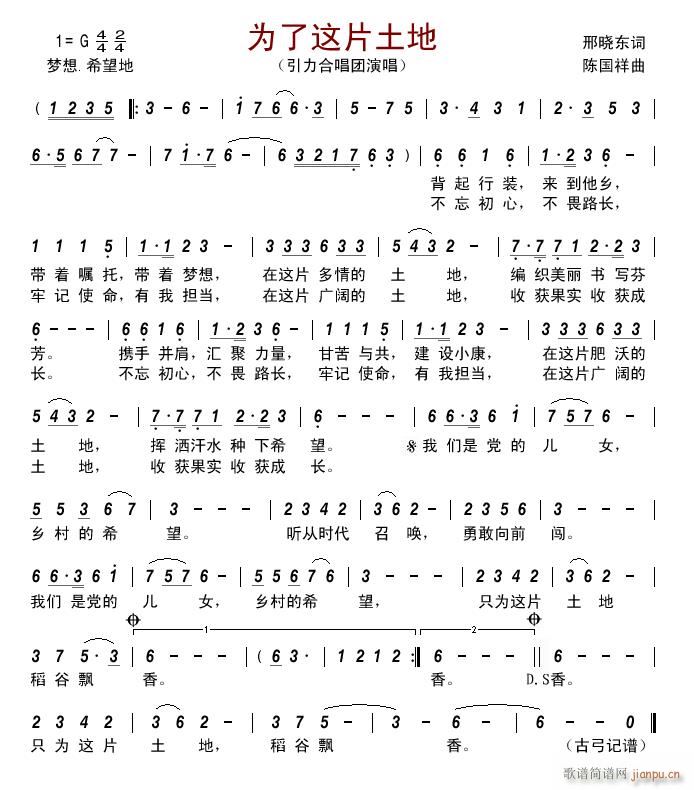 为了这片土地
1= G 4/4 2/4
邢晓东词
梦想.希望地
（引力合唱团演唱）
陈国祥曲
( 1 2 3 5 ‖: 3 - 6 - | i 7 6 6·3 | 5 - - - | 7 6 7 5 3 | 3· 4 3 1 | 2 - - 3 |
6·5 6 7 7 - | 7 i·7 6 - | 6 3 2 1 7 6 3 ) | 6 6 1 6 | 1·2 3 6 - |
背 起 行 装， 来 到他 乡，
不 忘 初 心， 不 畏路 长，
1 1 1 5 | 1·1 2 3 - | 3 3 3 3 6 3 | 5 4 3 2 - | 7·7 7 1 2·2 2 3 |
带 着 嘱 托，带 着 梦想， 在这片 多情的 土 地， 编 织美丽 书 写芬
牢 记 使 命，有 我 担当， 在这片 广阔的 土 地， 收 获果实 收 获成
6 - - - | 6 6 1 6 | 1·2 3 6 - | 1 1 1 5 | 1·1 2 3 - | 3 3 3 3 6 3 |
芳。 携手 并肩，汇 聚 力量， 甘苦 与共，建 设小康， 在这片肥 沃的
长。 不忘 初心，不 畏 路长， 牢记 使命，有 我担当， 在这片广 阔的
5 4 3 2 - | 7·7 7 1 2·2 3 | 6 - - - | 6 6·3 6 i | 7 5 7 6 - |
土 地， 挥 洒汗水 种 下希 望。 𝄋我 们是 党 的 儿 女，
土 地， 收 获果实 收 获成 长。
5 5 3 6 7 | 3 - - - | 2 3 4 2 3 - | 2 3 5 6 6 - |
乡 村 的 希 望。 听从时代 召 唤， 勇敢向前 闯。
6 6·3 6 i | 7 5 7 6 - | 5 5 6 7 6 | 3 - - - | 2 3 4 2 | 3 6 2 - |
我们 是党的 儿 女， 乡村的希 望， 只为这片 土 地
1 2
3 7 5·3 | 6 - - - | ( 6 3· | 1 2 1 2 :‖ 6 - - - ‖ 6 - - - |
稻 谷 飘 香。 香。 D.S香。
2 3 4 2 | 3 6 2 - | 3 7 5 - | 3 - 6 - | 6 - - 0 ‖
只 为 这 片 土 地， 稻 谷 飘 香。 （古弓记谱）
歌谱简谱网 jianpu.cn